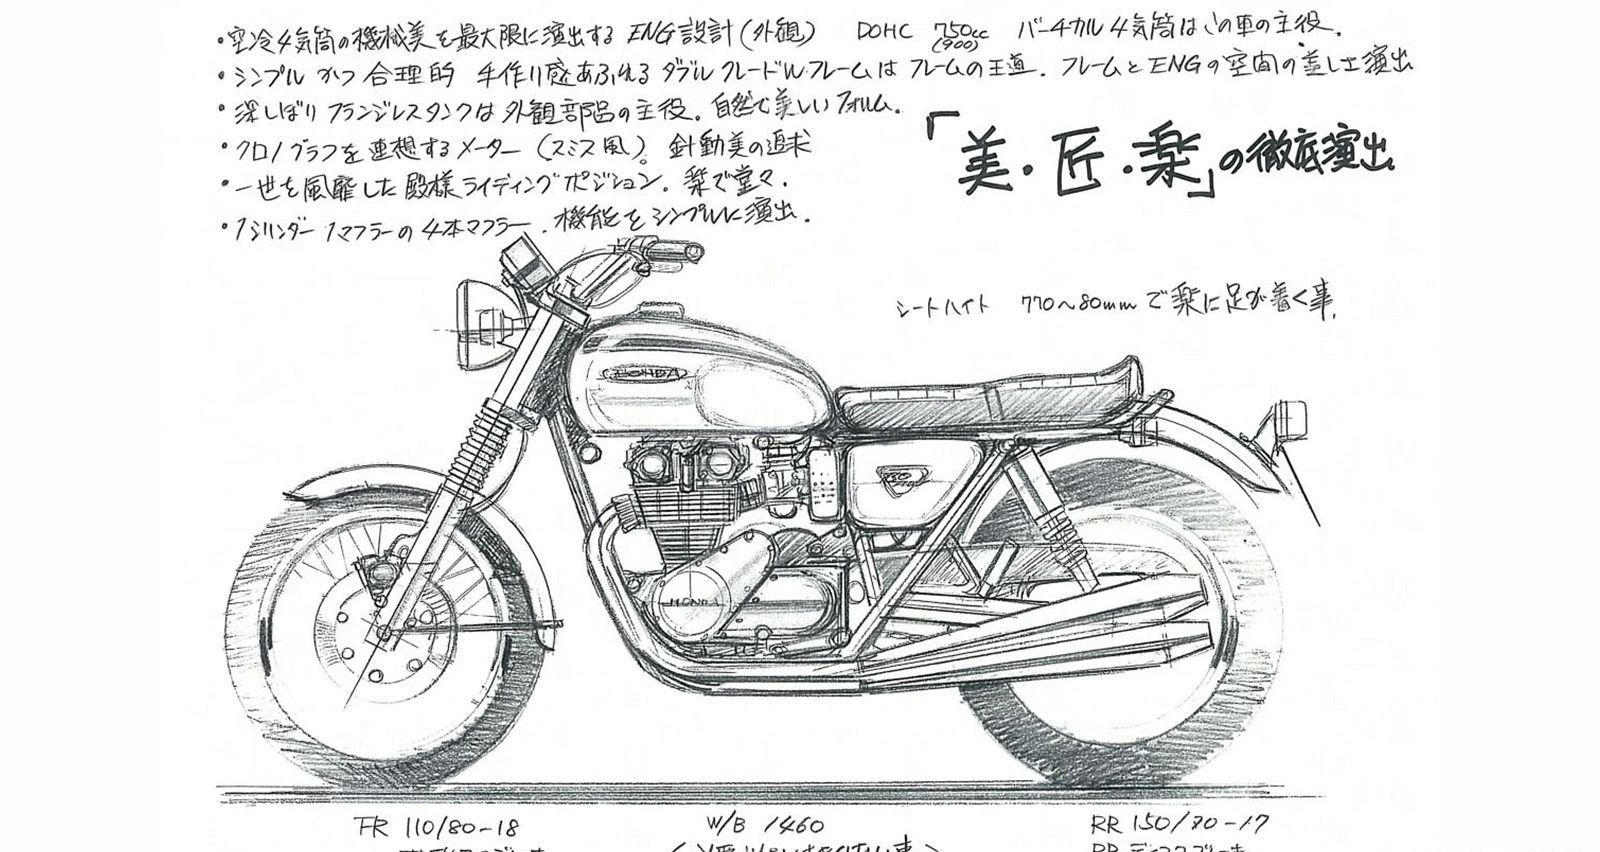 ・空冷4気筒の機械美を最大限に演出する ENG設計(外観) DOHC 750cc バーチカル4気筒はこの車の主役.
(900)
・シンプル かつ 合理的 手作り感あふれる ダブルクレードルフレームは フレームの王道. フレームとENGの空間の美しさ演出
・深しぼり フランジレスタンクは 外観部品の主役. 自然で美しいフォルム.
・クロノグラフを連想するメーター (スミス風)。針動美の追求
「美・匠・楽」の徹底演出
・一世を風靡した殿様ライディングポジション. 楽で堂々.
・1シリンダー1マフラーの4本マフラー. 機能をシンプルに演出.
シートハイト 770〜80mmで楽に足が着く事.
HONDA
750
HONDA
FR 110/80-18 W/B 1460 RR 150/70-17